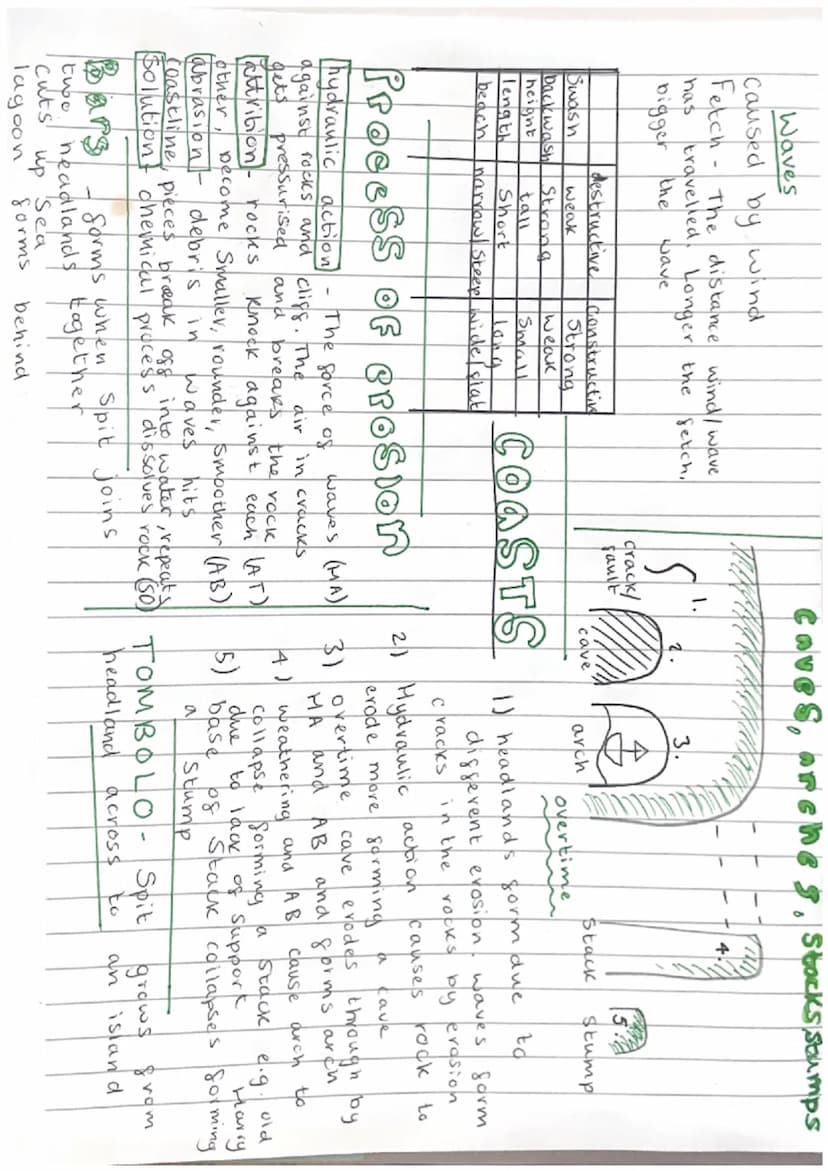 Waves
Caused by wind
Fetch - The distance wind/wave
has travelled. Longer the fetch,
bigger the wave
destructive constructive
Swash weak Strong
backwash Strong weak
height tall Small
length Short long
beach narrow/steep wide/flat
COASTS
Process of erosion
hydraulic action - The force of waves (HA)
against rocks and cliffs. The air in cracks
gets pressurised and breaks the rock
attribion - rocks knock against each (AT)
other, become smaller, rounder, smoother (AB)
abrasion - debris in waves hits
coastline, pieces break off into water, repeats
Solution - chemical process dissolves rock (SO)
Bars - forms when Spit joins
two headlands together
cuts up sea
lagoon forms behind
Caves, arches, Stacks, Stumps
1.
crack/
fault
2.
cave
3.
arch
4.
Stack
5.
Stump
overtime
1) headlands form due to
different erosion. waves form
cracks in the rocks by erosion
2) Hydraulic action causes rock to
erode more forming a cave
3) overtime cave erodes through by
HA and AB and forms arch
4) weathering and AB cause arch to
collapse forming a stack e.g. old Harry
due to lack of support
5) base of Stack collapses forming
a Stump
TOMBOLO - Spit grows from
headland across to an island